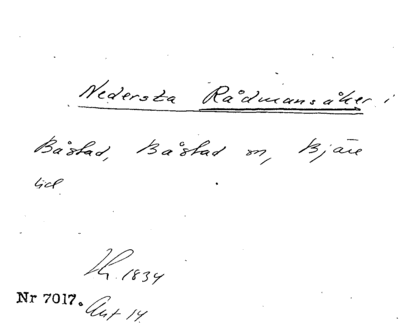 Nedersta Rådmansåker i
Båstad, Båstad sn, Bjäre
hd
Th. 1834
Nr 7017. Akt 14.